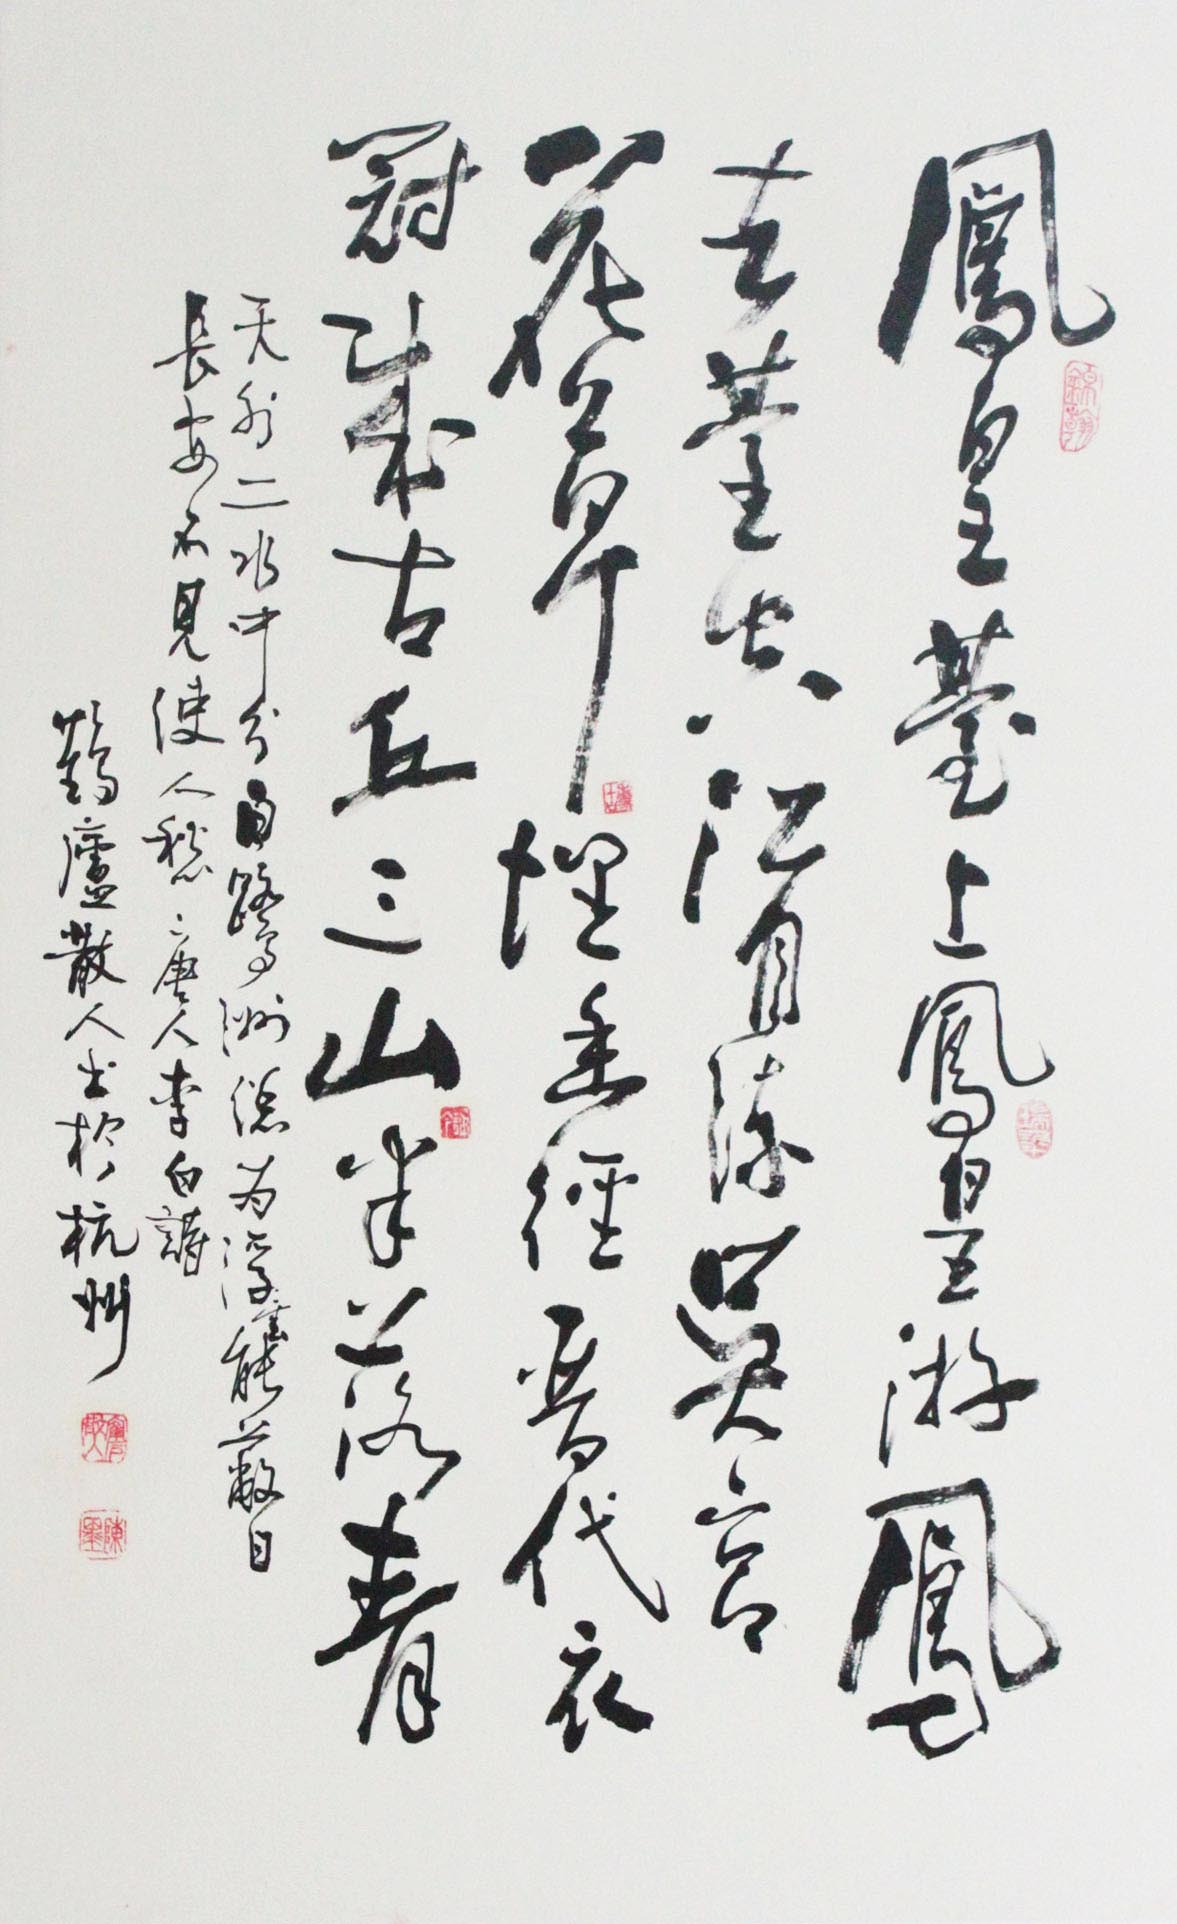 鳳皇臺上鳳皇游鳳
去臺空江自流吳宮
花草埋幽徑晉代衣
冠成古丘三山半落青
天外二水中分白鷺洲總为浮雲能蔽日
長安不見使人愁唐人李白詩
鶴廬散人书於杭州